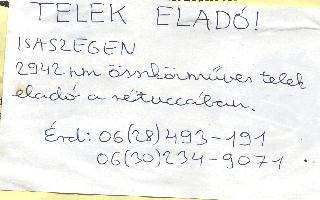 TELEK ELADÓ!
ISASZEGEN
2942 nm összkörműves telek
eladó a rétuccában.
Érd: 06(28)493-191
06(30)234-9071